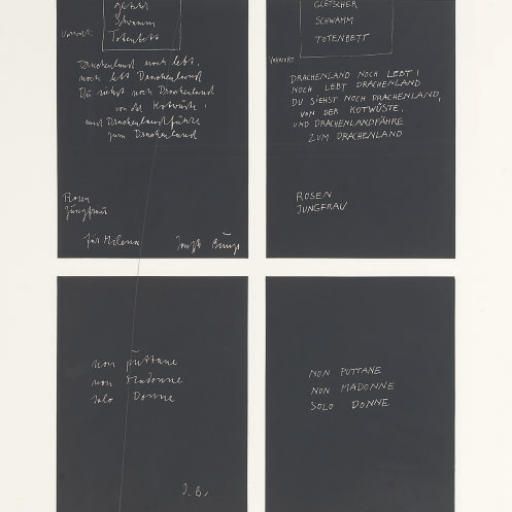 Gletscher
Schwamm
Totenbett
Vorwort:
Drachenland noch lebt,
noch lebt Drachenland
Du siehst noch Drachenland
von der Kotwüste,
und Drachenlandfähre
zum Drachenland
Rosen
Jungfrau
für Milena
GLETSCHER
SCHWAMM
TOTENBETT
VORWORT
DRACHENLAND NOCH LEBT!
NOCH LEBT DRACHENLAND
DU SIEHST NOCH DRACHENLAND,
VON DER KOTWÜSTE,
UND DRACHENLANDFÄHRE
ZUM DRACHENLAND
ROSEN
JUNGFRAU
non puttane
non Madonne
solo Donne
J. B.
NON PUTTANE
NON MADONNE
SOLO DONNE